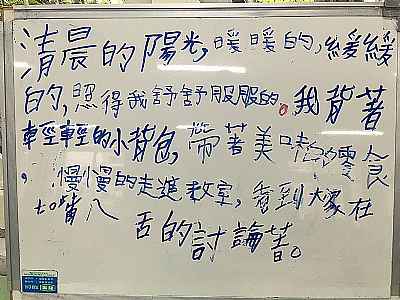 清晨的陽光,暖暖的,緩緩
的,照得我舒舒服服的。我背著
輕輕的小背包,帶著美味的零食
,慢慢的走進教室,看到大家在
七嘴八
舌的討論著。